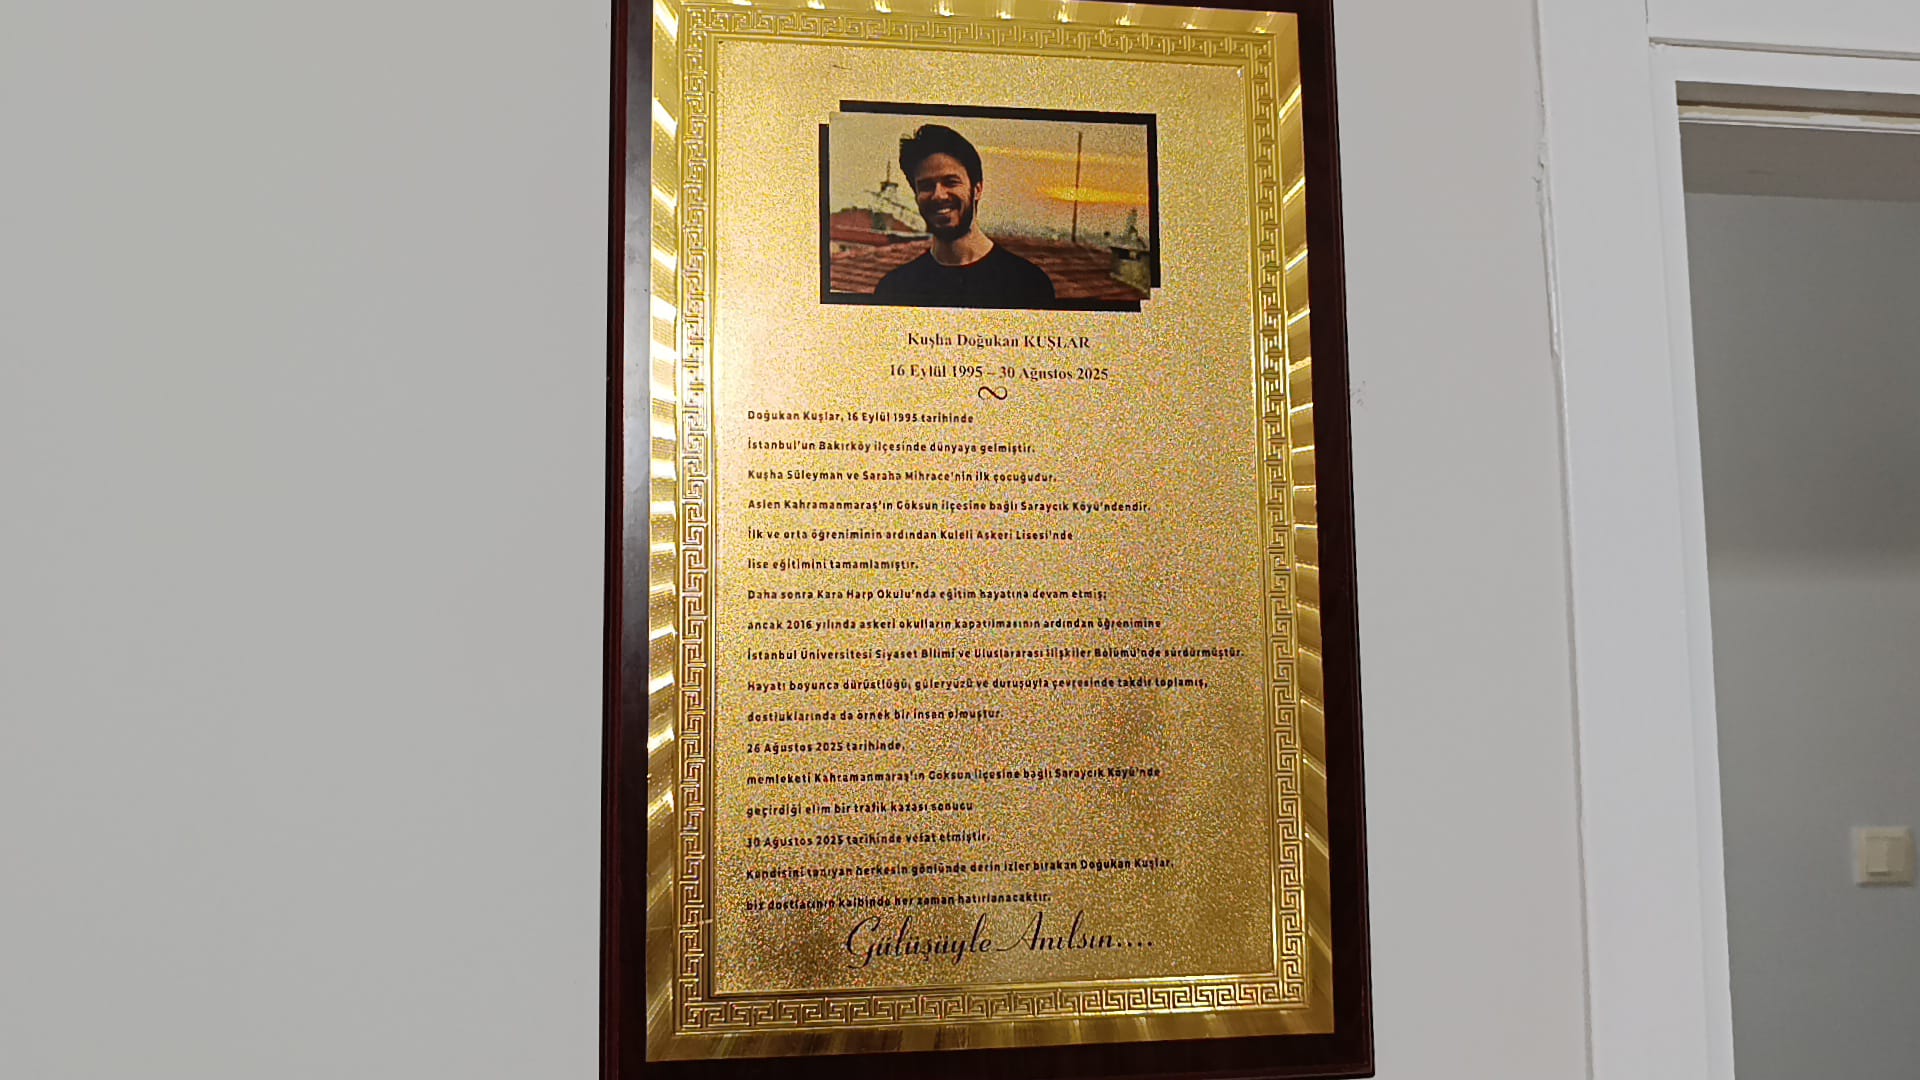 Kuşha Doğukan KUŞLAR
16 Eylül 1995 – 30 Ağustos 2025
Doğukan Kuşlar, 16 Eylül 1995 tarihinde
İstanbul'un Bakırköy ilçesinde dünyaya gelmiştir.
Kuşha Süleyman ve Saraha Mihrace'nin ilk çocuğudur.
Aslen Kahramanmaraş'ın Göksun ilçesine bağlı Saraycık Köyü'ndendir.
İlk ve orta öğreniminin ardından Kuleli Askeri Lisesi'nde
lise eğitimini tamamlamıştır.
Daha sonra Kara Harp Okulu'nda eğitim hayatına devam etmiş;
ancak 2016 yılında askeri okulların kapatılmasının ardından öğrenimine
İstanbul Üniversitesi Siyaset Bilimi ve Uluslararası İlişkiler Bölümü'nde sürdürmüştür.
Hayatı boyunca dürüstlüğü, güleryüzü ve duruşuyla çevresinde takdir toplamış,
dostluklarında da örnek bir insan olmuştur.
26 Ağustos 2025 tarihinde,
memleketi Kahramanmaraş'ın Göksun ilçesine bağlı Saraycık Köyü'nde
geçirdiği elim bir trafik kazası sonucu
30 Ağustos 2025 tarihinde vefat etmiştir.
Kendisini tanıyan herkesin gönlünde derin izler bırakan Doğukan Kuşlar,
biz dostlarının kalbinde her zaman hatırlanacaktır.
Gülüşüyle Anılsın....